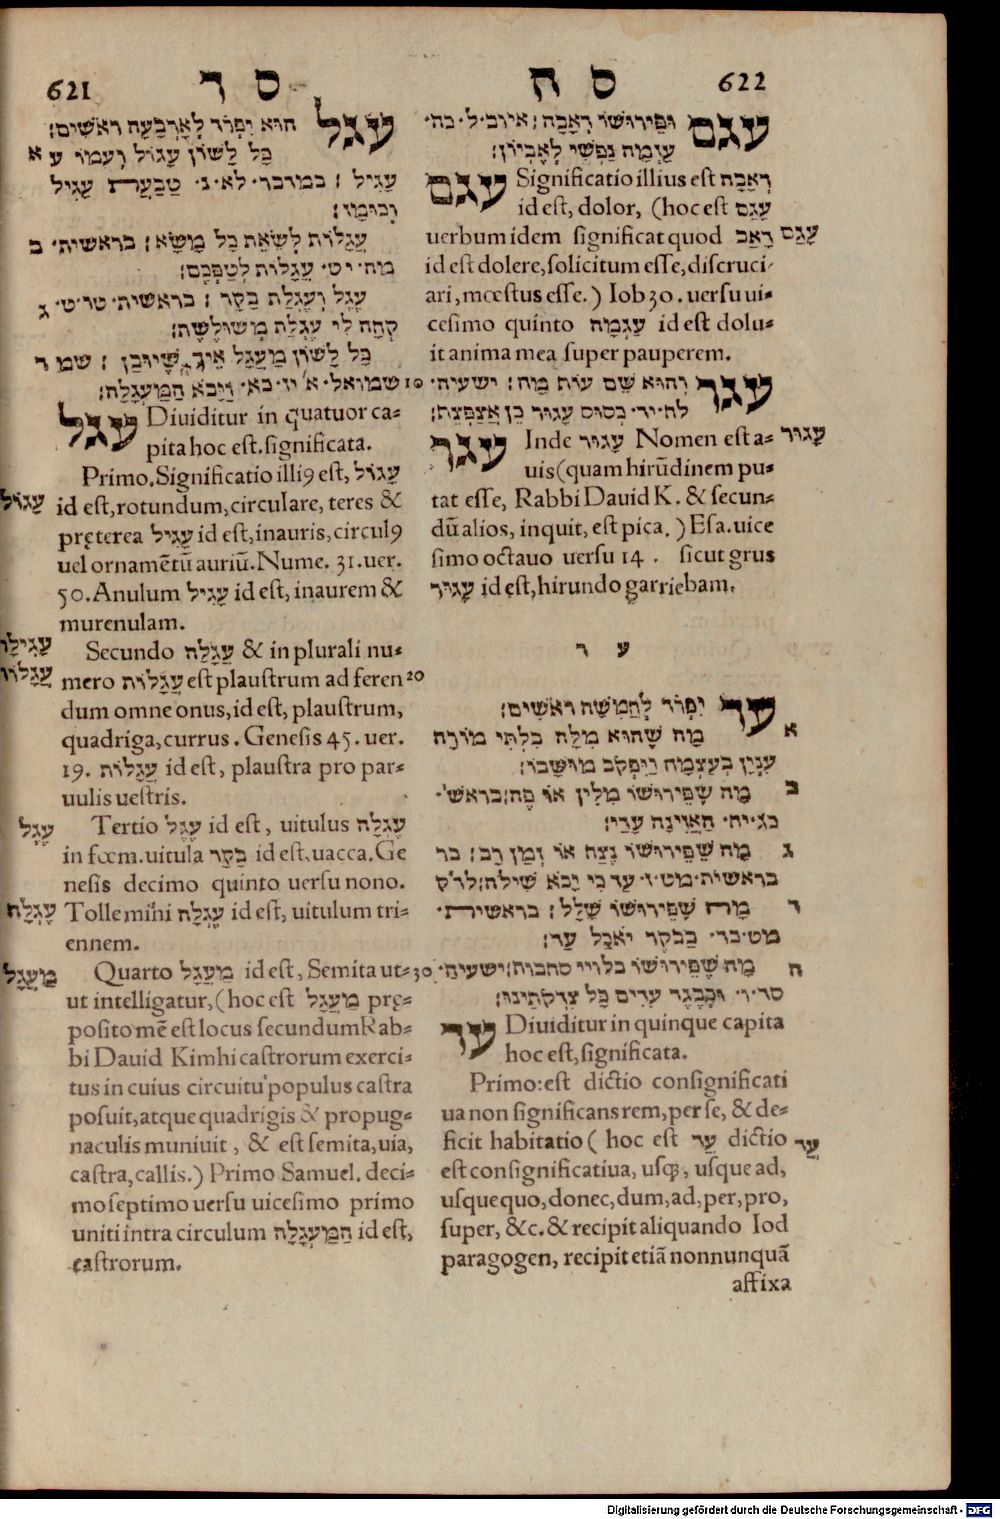 621 ס ד
עגל הוא יפרד לארבעה ראשים׃
א כל לשון עגול ועמו ע
עגיל ׃ במדבר׳ לא׳ נ׳ טבעת עגיל
וכומז׃
ב עגלות לשאת כל משא׃ בראשית׳
מה׳ יט׳ עגלות לטפכם׃
ג עגל ועגלת בקר ׃ בראשית׳ טו׳ ט׳
קחה לי עגלת משולשת׃
ד כל לשון מעגל איך שיובן ׃ שמ
שמואל׳ א׳ יז׳ כא׳ ויבא המעגלה׃ 10
עגל Diuiditur in quatuor ca-
pita hoc est. significata.
Primo. Significatio illi9 est, עגול
עגול id est, rotundum, circulare, teres &
pręterea עגיל id est, inauris, circul9
uel ornamẽtũ auriũ. Nume. 31. uer.
50. Anulum עגיל id est, inaurem &
murenulam.
Secundo עגלה & in plurali nu-
mero עגלות est plaustrum ad feren 20
dum omne onus, id est, plaustrum,
quadriga, currus. Genesis 45. uer.
19. עגלות id est, plaustra pro par-
uulis uestris.
עגל Tertio עגל id est, uitulus עגלה
in fœm. uitula בקר id est, uacca. Ge
nesis decimo quinto uersu nono.
עגלה Tolle mihi עגלה id est, uitulum tri-
ennem.
מעגל Quarto מעגל id est, Semita ut- 30
ut intelligatur, (hoc est מעגל prę-
posito mẽ est locus secundum Rab-
bi Dauid Kimhi castrorum exerci-
tus in cuius circuitu populus castra
posuit, atque quadrigis & propug-
naculis muniuit, & est semita, uia,
castra, callis.) Primo Samuel. deci-
mo septimo uersu uicesimo primo
uniti intra circulum המעגלה id est,
castrorum.
ס ה 622
עגם ופירושו דאבה׃ איוב׳ ל׳ כה׳
עגמה נפשי לאביון׃
עגם Significatio illius est דאבה
id est, dolor, (hoc est עגם
עגם uerbum idem significat quod דאב
id est dolere, solicitum esse, discruci-
ari, mœstus esse.) Iob 30. uersu ui-
cesimo quinto עגמה id est dolu-
it anima mea super pauperem.
עגר והוא שם עוף מה׃ ישעיה׳
לח׳ יד׳ כסוס עגור כן אצפצף׃
עגור עגר Inde עגור Nomen est a-
uis (quam hirũdinem pu-
tat esse, Rabbi Dauid K. & secun-
dũ alios, inquit, est pica.) Esa. uice
simo octauo uersu 14. sicut grus
עגור id est, hirundo garriebam.
ע ד
עד יפרד לחמשה ראשים׃
א מה שהוא מלה בלתי מורה
ענין בעצמה
ב מה שפירושו מלין או פה׃ בראש׳
האזינה עדי׃
ג מה שפירושו נצח או זמן רב׃ בר
בראשית׳ מט׳ י׳ עד כי יבא שילה׃
ד מה שפירושו שלל׃ בראשית׳
מט׳ כז׳ בבקר יאכל עד׃
ה מה שפירושו בלויי סחבות׃ ישעיה׳
סד׳ ו׳ וכבגד עדים כל צדקתינו׃
עד Diuiditur in quinque capita
hoc est, significata.
Primo: est dictio consignificati
ua non significans rem, per se, & de-
עד ficit habitatio (hoc est עד dictio
est consignificatiua, usq3, usque ad,
usquequo, donec, dum, ad, per, pro,
super, &c. & recipit aliquando Iod
paragogen, recipit etiã nonnunquã
affixa
Digitalisierung gefördert durch die Deutsche Forschungsgemeinschaft - DFG